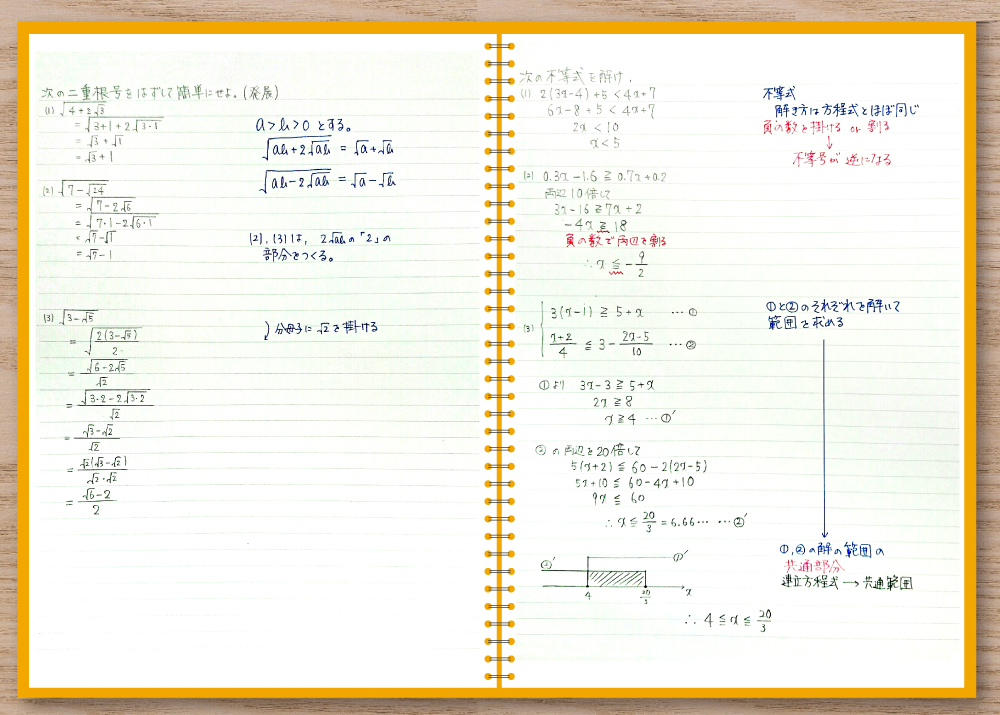 次の二重根号をはずして簡単にせよ。(発展)
(1) √(4+2√3)
= √(3+1+2√(3·1))
= √3+√1
= √3+1
a>b>0 とする。
√(ab+2√ab) = √a+√b
√(ab-2√ab) = √a-√b
(2) √(7-√24)
= √(7-2√6)
= √(7·1-2√(6·1))
= √7-√1
= √7-1
(2), (3)は, 2√abの「2」の
部分をつくる。
(3) √(3-√5)
= √(2(3-√5)/2)
= √(6-2√5)/√2
= √(3·2-2√(3·2))/√2
= (√3-√2)/√2
= √2(√3-√2)/(√2·√2)
= (√6-2)/2
分母子に√2を掛ける
次の不等式を解け.
(1) 2(3x-4)+5<4x+7
6x-8+5<4x+7
2x<10
x<5
不等式
解き方は方程式とほぼ同じ
負の数を掛ける or 割る
↓
不等号が逆になる
(2) 0.3x-1.6≧0.7x+0.2
両辺10倍して
3x-16≧7x+2
-4x≧18
負の数で両辺を割る
∴x≦-9/2
(3) 3(x-1)≧5+x …①
(x+2)/4≦3-(2x-5)/10 …②
①と②のそれぞれを解いて
範囲を求める
①より 3x-3≧5+x
2x≧8
x≧4 …①′
②の両辺を20倍して
5(x+2)≦60-2(2x-5)
5x+10≦60-4x+10
9x≦60
∴x≦20/3=6.66… …②′
①,②の解の範囲の
共通部分
連立方程式→共通範囲
②′ ①′
4 20/3 x
∴4≦x≦20/3